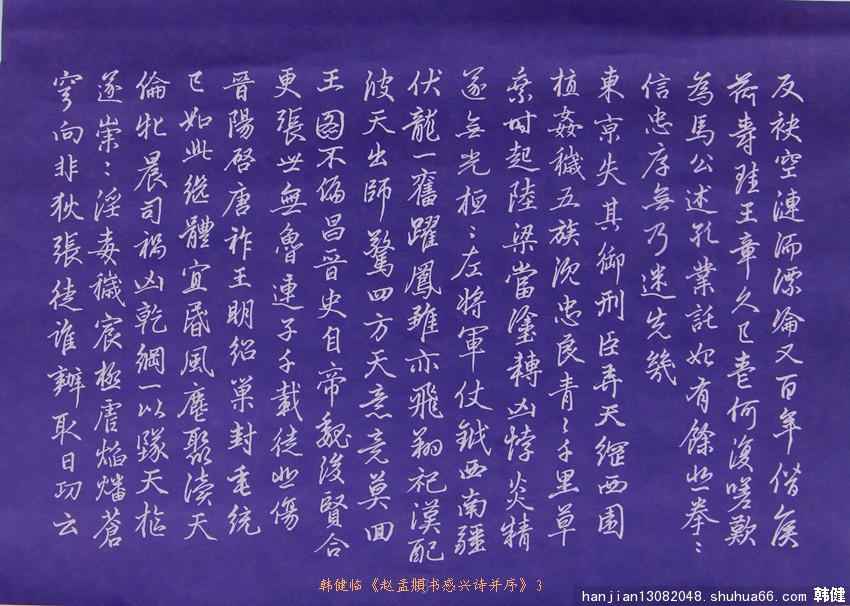 反袂空漣洏漂淪又百年僭侯
荷壽珪王章久已喪何復嗟歎
為馬公述孔業託始有餘悲拳〻
信忠厚無乃迷先幾
東京失其御刑臣弄天綱西園
植姦穢五族沉忠良青〻千里草
乘時起陸梁當塗轉凶悖炎精
遂無光桓〻左將軍仗鉞西南疆
伏龍一奮躍鳳雛亦飛翔祀漢配
彼天出師驚四方天意竟莫回
王圖不偏昌晉史自帝魏後賢合
更張世無魯連子千載徒悲傷
晉陽啓唐祚王明紹巢封垂統
已如此繼體宜昏風塵聚瀆天
倫牝晨司禍凶乾綱一以墜天樞
遂崇〻淫毒穢宸極虐焰燔蒼
穹向非狄張徒誰辦取日功云
韩健临《赵孟頫书感兴诗并序》3
hanjian13082048.shuhua66.com 韩健